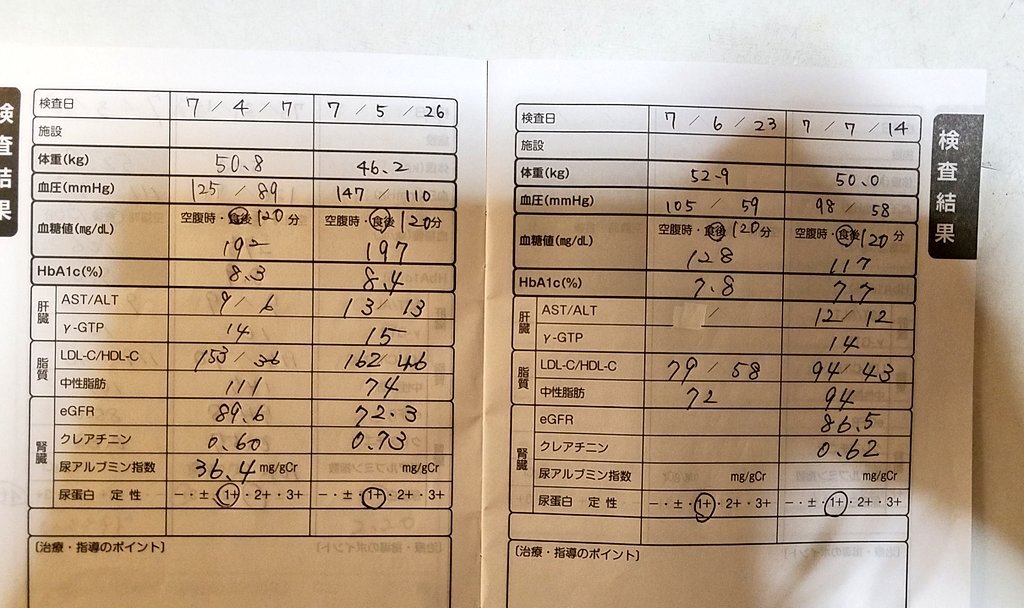 検査結果
検査日 7/4/7 7/5/26
施設
体重(kg) 50.8 46.2
血圧(mmHg) 125/89 147/110
血糖値(mg/dL) 空腹時・食後120分 空腹時・食後120分
192 197
HbA1c(%) 8.3 8.4
肝臓
AST/ALT 9/6 13/13
γ-GTP 14 15
脂質
LDL-C/HDL-C 153/36 162/46
中性脂肪 111 74
腎臓
eGFR 89.6 72.3
クレアチニン 0.60 0.73
尿アルブミン指数 36.4 mg/gCr mg/gCr
尿蛋白 定性 −・±・1+・2+・3+ −・±・1+・2+・3+
〔治療・指導のポイント〕
検査結果
検査日 7/6/23 7/7/14
施設
体重(kg) 52.9 50.0
血圧(mmHg) 105/59 98/58
血糖値(mg/dL) 空腹時・食後120分 空腹時・食後120分
128 117
HbA1c(%) 7.8 7.7
肝臓
AST/ALT / 12/12
γ-GTP 14
脂質
LDL-C/HDL-C 79/58 94/43
中性脂肪 72 94
腎臓
eGFR 86.5
クレアチニン 0.62
尿アルブミン指数 mg/gCr mg/gCr
尿蛋白 定性 −・±・1+・2+・3+ −・±・1+・2+・3+
〔治療・指導のポイント〕